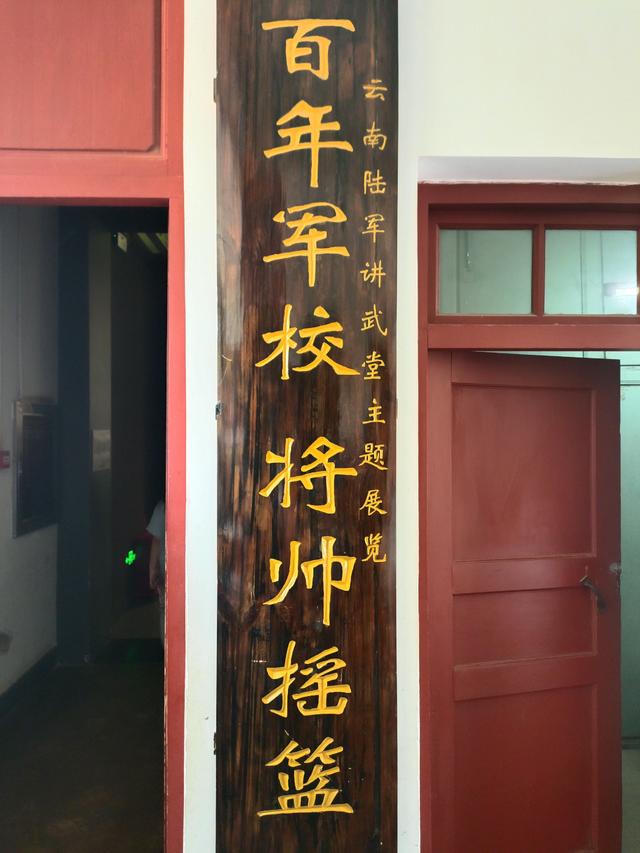 百年军校 将帅摇篮
云南陆军讲武堂主题展览